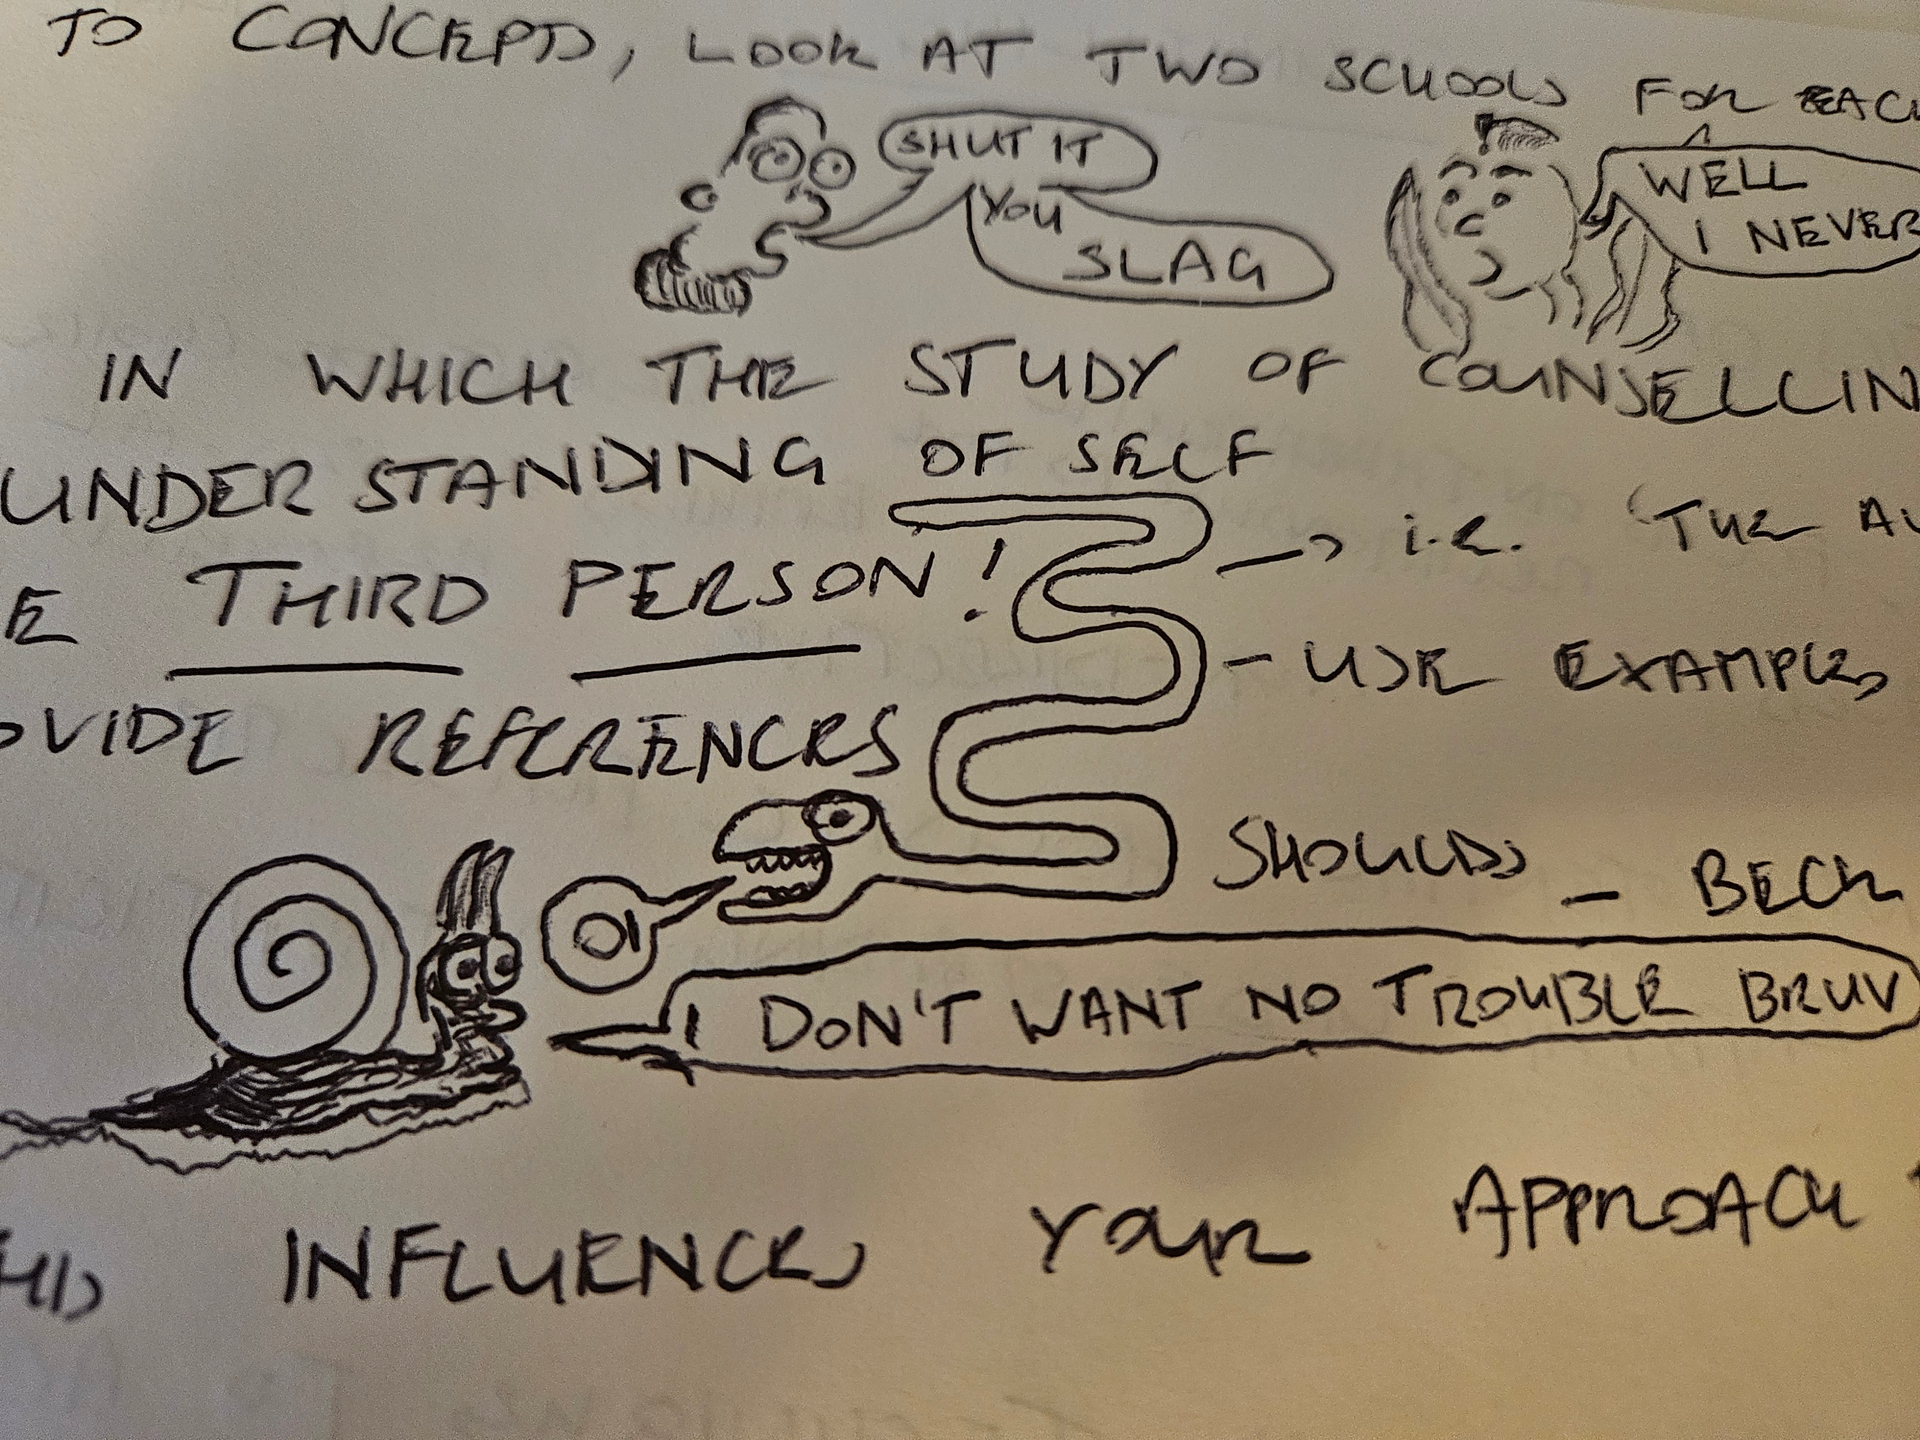 TO CONCEPTS, LOOK AT TWO SCHOOLS FOR EACH
SHUT IT
YOU
SLAG
WELL
I NEVER
IN WHICH THE STUDY OF COUNSELLIN
UNDERSTANDING OF SELF
E THIRD PERSON! → i.e. 'THE AU
- USE EXAMPLES
OVIDE REFERENCES
SHOULDS - BECK
OI
I DON'T WANT NO TROUBLE BRUV
HIS INFLUENCES YOUR APPROACH